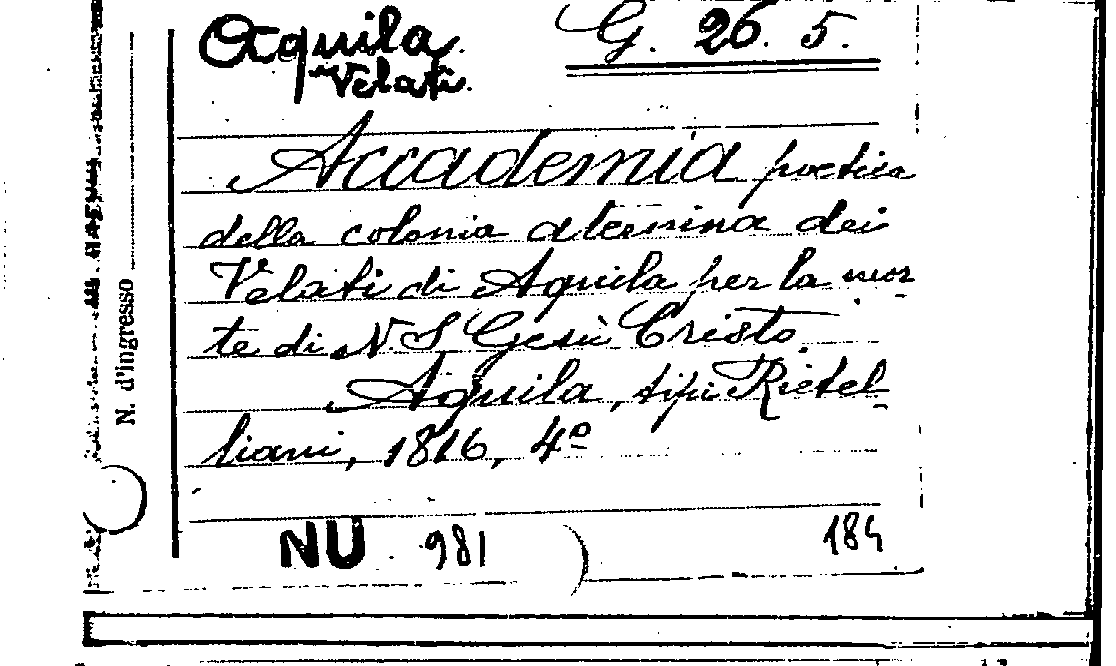 Aquila G. 26. 5.
Velati.
Accademia poetica
della colonia aternina dei
Velati di Aquila per la mor
te di N S Gesù Cristo.
Aquila, tipi Rietel-
liani, 1816, 4º
NU 981 184
N. d'ingresso